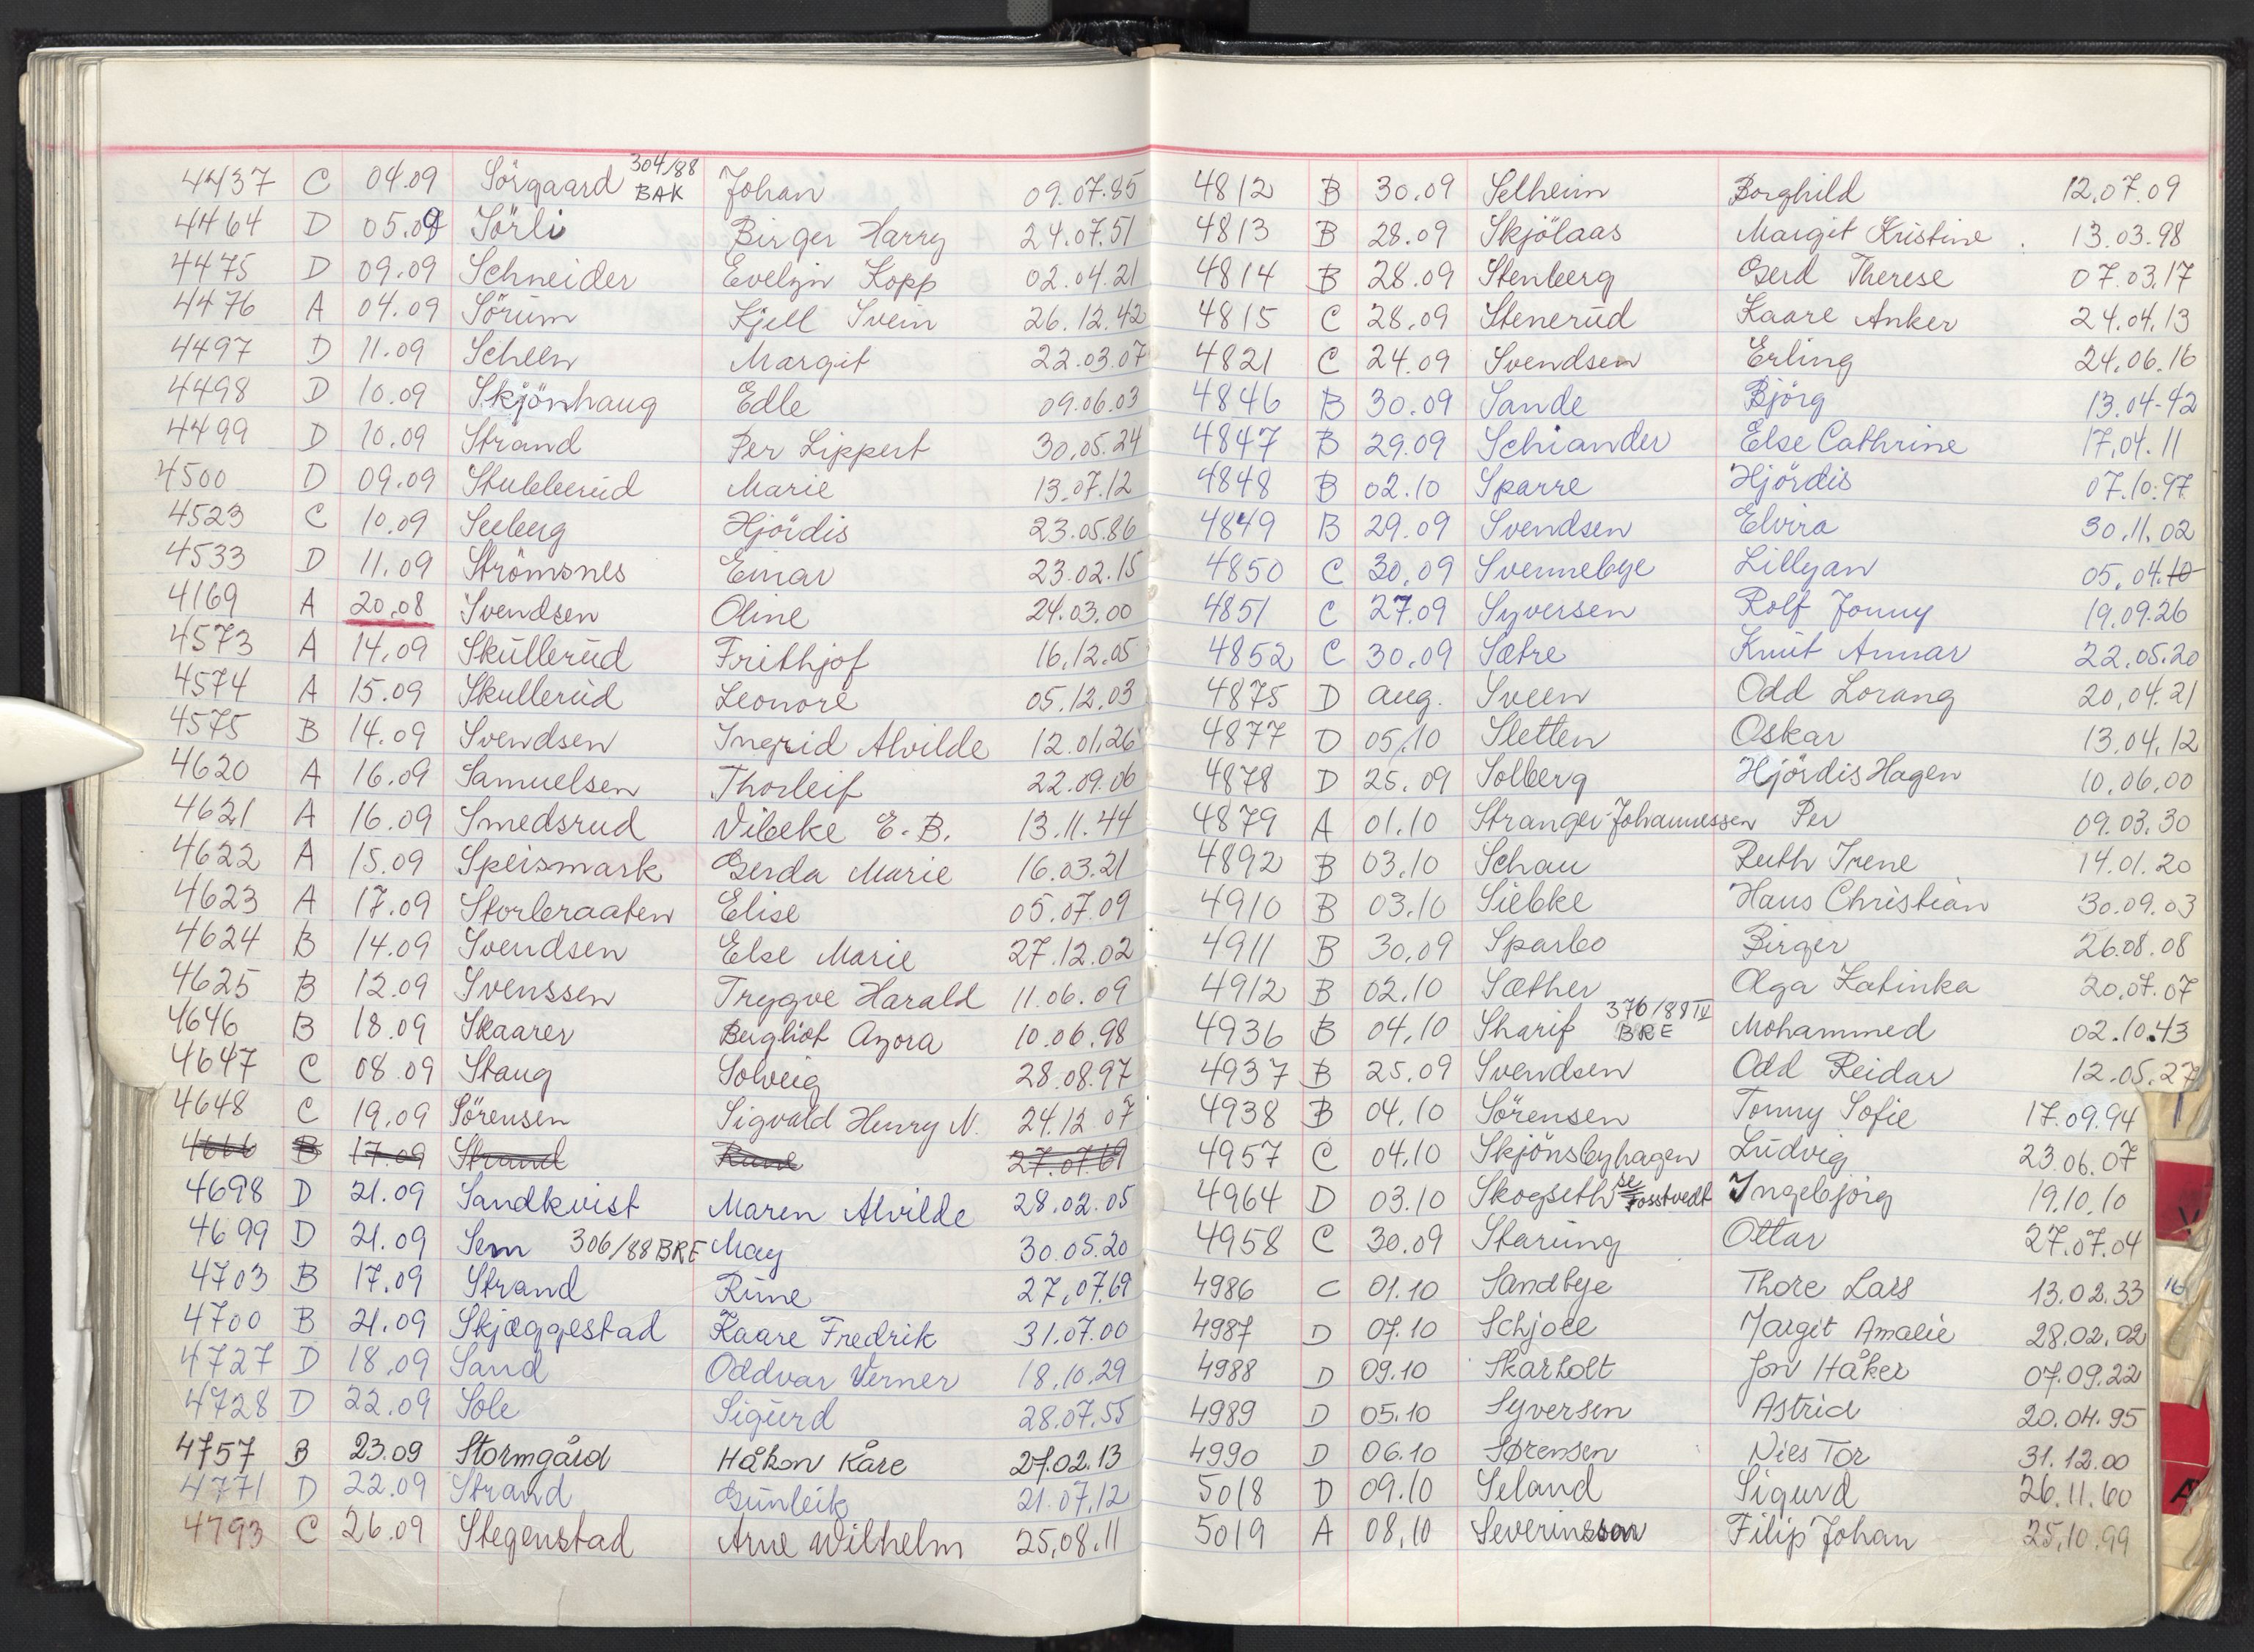 4437 C 04.09 Sörgaard 304/88 BAK Johan 09.07.85
4464 D 05.09 Sörli Birger Harry 24.07.51
4475 D 09.09 Schneider Evelyn Kopp 02.04.21
4476 A 04.09 Sörum Kjell Svein 26.12.42
4497 D 11.09 Scheen Margit 22.03.07
4498 D 10.09 Skjönhaug Edle 09.06.03
4499 D 10.09 Strand Per Lippert 30.05.24
4500 D 09.09 Stubberud Marie 13.07.12
4523 C 10.09 Seeberg Hjördis 23.05.86
4533 D 11.09 Strömsnes Einar 23.02.15
4169 A 20.08 Svendsen Oline 24.03.00
4573 A 14.09 Skullerud Frithjof 16.12.05
4574 A 15.09 Skullerud Leonore 05.12.03
4575 B 14.09 Svendsen Ingrid Alvilde 12.01.26
4620 A 16.09 Samuelsen Thorleif 22.09.06
4621 A 16.09 Smedsrud Vibeke E. B. 13.11.44
4622 A 15.09 Speismark Gerda Marie 16.03.21
4623 A 17.09 Storbraaten Elise 05.07.09
4624 B 14.09 Svendsen Else Marie 27.12.02
4625 B 12.09 Svenssen Trygve Harald 11.06.09
4646 B 18.09 Skaarer Bergliot Azora 10.06.98
4647 C 08.09 Staug Solveig 28.08.97
4648 C 19.09 Sörensen Sigvald Henry N. 24.12.07
4666 B 17.09 Strand Rune 27.07.69
4698 D 21.09 Sandkvist Maren Alvilde 28.02.05
4699 D 21.09 Sem 306/88 BRE May 30.05.20
4703 B 17.09 Strand Rune 27.07.69
4700 B 21.09 Skjæggestad Kaare Fredrik 31.07.00
4727 D 18.09 Sand Oddvar Verner 18.10.29
4728 D 22.09 Sole Sigurd 28.07.55
4757 B 23.09 Stormgård Håkon Kåre 27.02.13
4771 D 22.09 Strand Gunleik 21.07.12
4793 C 26.09 Stegenstad Arne Wilhelm 25.08.11
4812 B 30.09 Selheim Borghild 12.07.09
4813 B 28.09 Skjölaas Margit Kristine 13.03.98
4814 B 28.09 Stenberg Gerd Therese 07.03.17
4815 C 28.09 Stenerud Kaare Anker 24.04.13
4821 C 24.09 Svendsen Erling 24.06.16
4846 B 30.09 Sande Björg 13.04.42
4847 B 29.09 Schiander Else Cathrine 17.04.11
4848 B 02.10 Sparre Hjördis 07.10.97
4849 B 29.09 Svendsen Elvira 30.11.02
4850 C 30.09 Svennebye Lillyan 05.04.10
4851 C 27.09 Syversen Rolf Jonny 19.09.26
4852 C 30.09 Sætre Knut Annar 22.05.20
4875 D aug. Sveen Odd Lorang 20.04.21
4877 D 05.10 Sletten Oskar 13.04.12
4878 D 25.09 Solberg Hjördis Hagen 10.06.00
4879 A 01.10 Stranger-Johannessen Per 09.03.30
4892 B 03.10 Schau Ruth Irene 14.01.20
4910 B 03.10 Siebke Hans Christian 30.09.03
4911 B 30.09 Sparbo Birger 26.08.08
4912 B 02.10 Sæther Olga Katinka 20.07.07
4936 B 04.10 Sharif 376/88 IV BRE Mohammed 02.10.43
4937 B 25.09 Svendsen Odd Reidar 12.05.27
4938 B 04.10 Sörensen Tonny Sofie 17.09.94
4957 C 04.10 Skjönsbyhagen Ludvig 23.06.07
4964 D 03.10 Skogseth se Tosstvedt Ingebjörg 19.10.10
4958 C 30.09 Starung Ottar 27.07.04
4986 C 01.10 Sandbye Thore Lars 13.02.33
4987 D 07.10 Schjoll Margit Amalie 28.02.02
4988 D 09.10 Skarholt Jon Håker 07.09.22
4989 D 05.10 Syversen Astrid 20.04.95
4990 D 06.10 Sørensen Nies Tor 31.12.00
5018 D 09.10 Seland Sigurd 26.11.60
5019 A 08.10 Severinsson Filip Johan 25.10.99